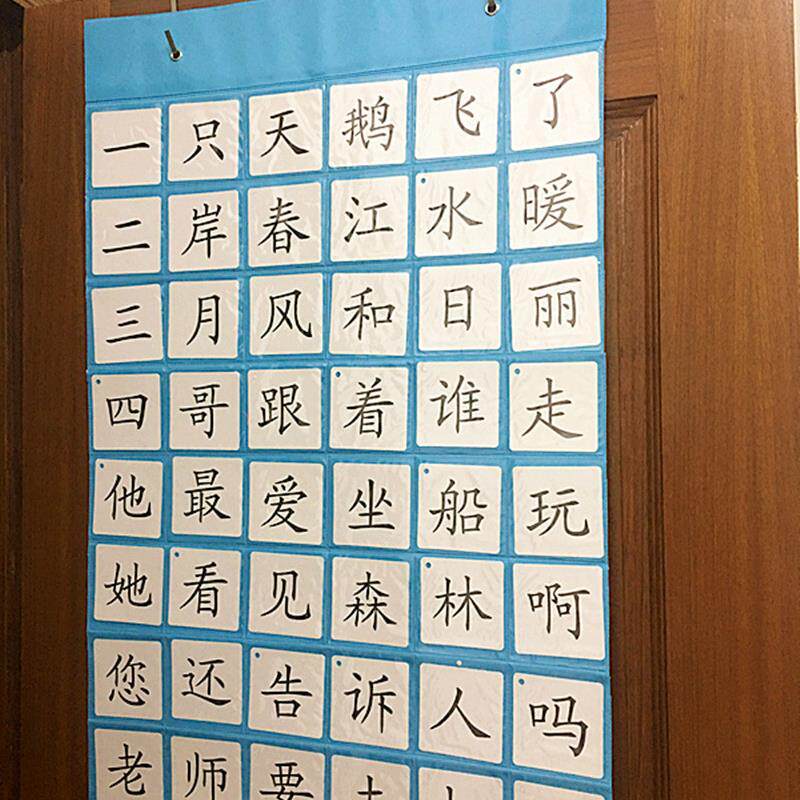 一只天鹅飞了
二岸春江水暖
三月风和日丽
四哥跟着谁走
他最爱坐船玩
她看见森林啊
您还告诉人吗
老师要